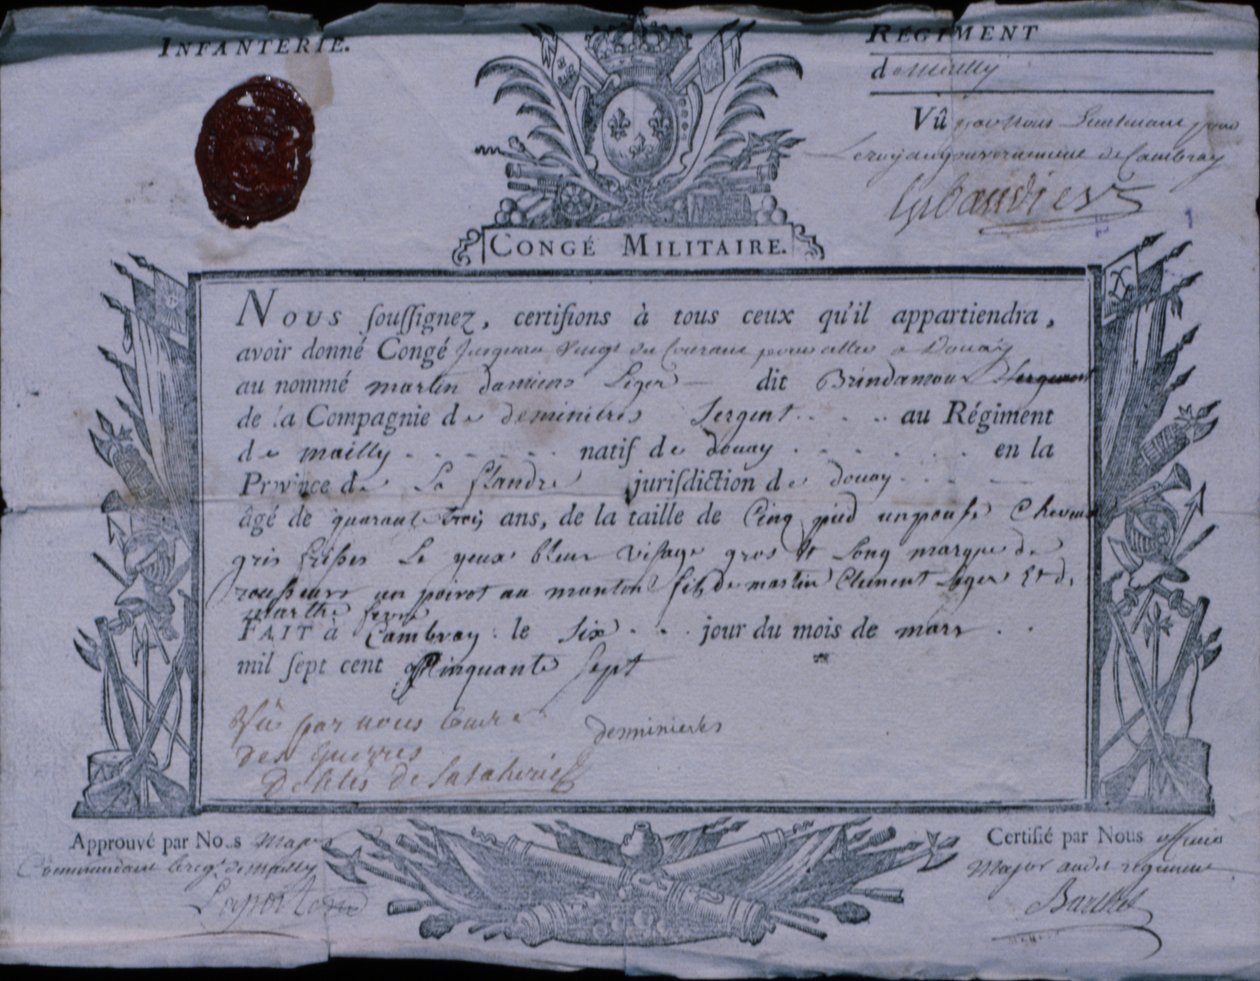 INFANTERIE.
RÉGIMENT
de Mailly
Vû par nous Lieutenant pour
Le roy au gouvernement de Cambray
CONGÉ MILITAIRE.
NOUS ſouſſignez, certifions à tous ceux qu'il appartiendra,
avoir donné Congé Jusquau Vingt du Courant pour aller a Douay
au nommé martin damiens Léger dit Brindamour Sergent
de la Compagnie de deminieres Sergent au Régiment
de mailly natif de douay en la
Province de La flandre juriſdiction de douay
âgé de quarant trois ans, de la taille de Cinq pied un pouse Cheveux
gris les yeux bleux visage gros et long marque de
rousseurs un poirot au manton fils de martin Clement Leger Et de
marthe
FAIT à Cambray le Six jour du mois de mars
mil ſept cent Cinquante Sept
Vû par nous Comre
des Guerres
deminieres
Approuvé par Nous Major
Commandant le regt de mailly
Certifié par Nous officier
Major audit regiment